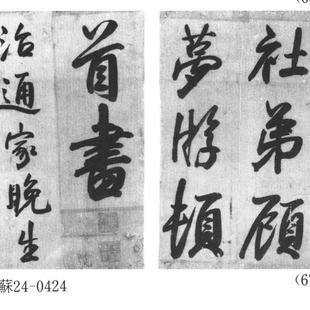 社弟顧
夢游頓
首書
治通家晚生
蘇24-0424